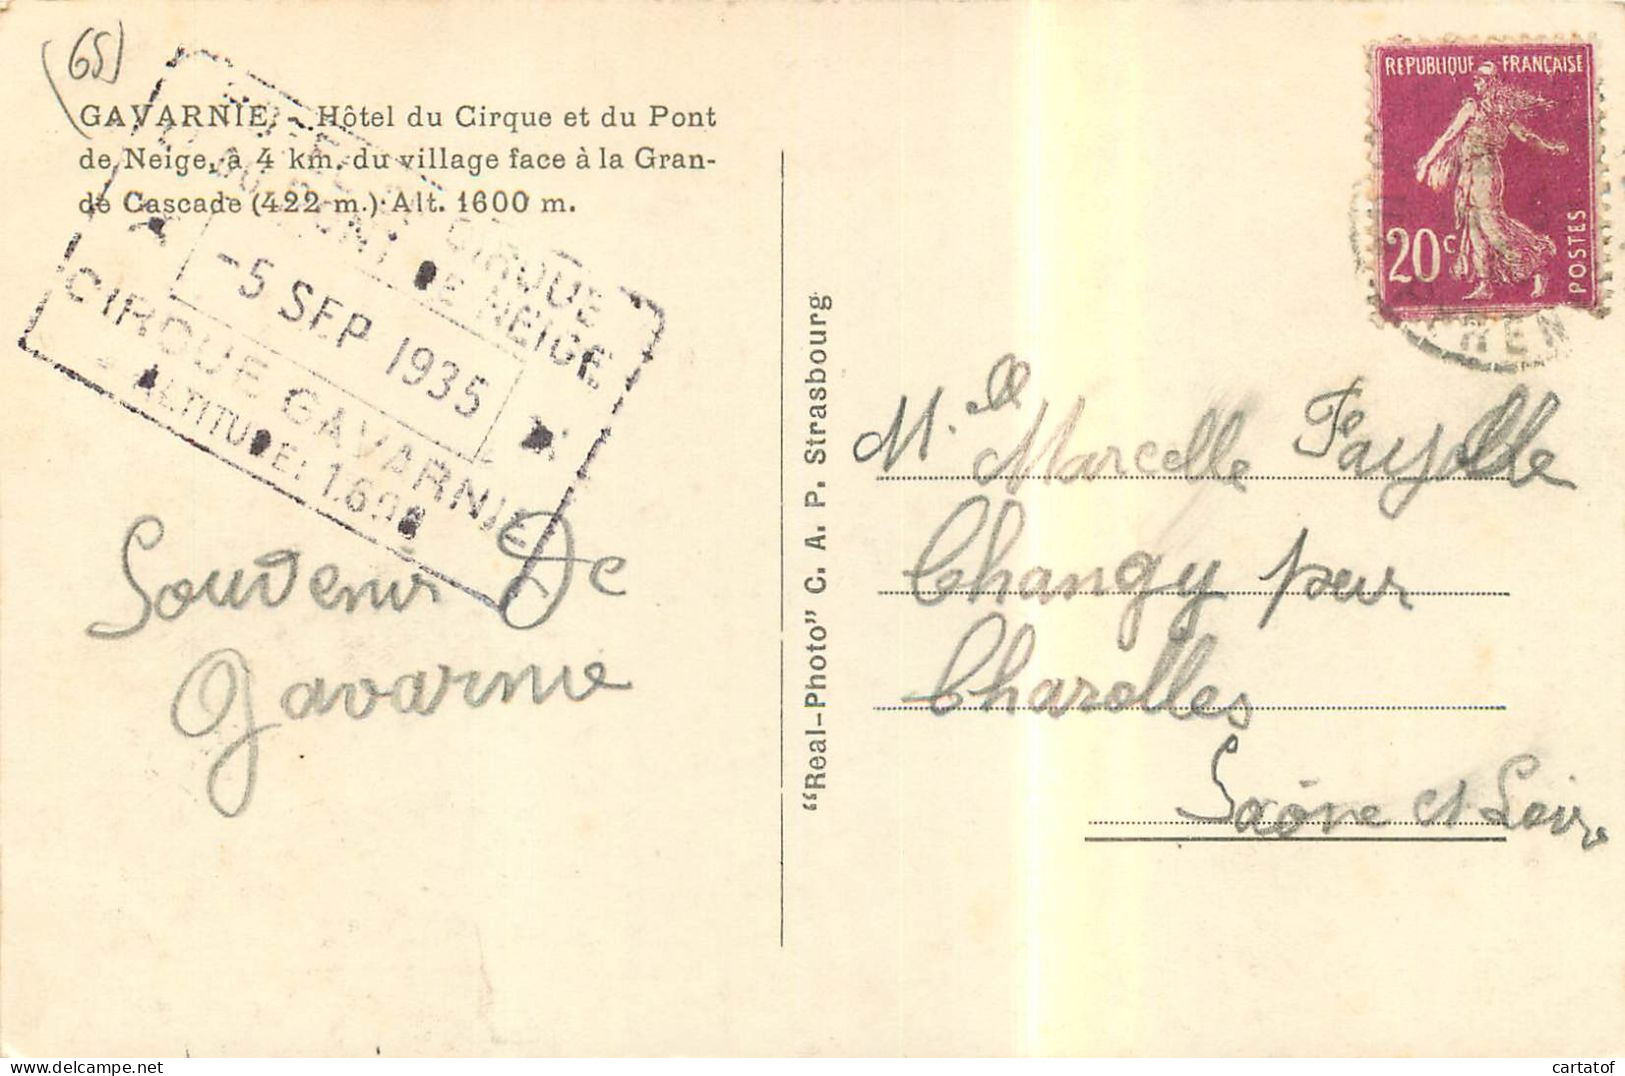 (65)
GAVARNIE. - Hôtel du Cirque et du Pont
de Neige, à 4 km. du village face à la Gran-
de Cascade (422 m.) Alt. 1600 m.
CIRQUE
PONT DE NEIGE
-5 SEP 1935
CIRQUE GAVARNIE
ALTITUDE: 1.600
Souvenir De
Gavarnie
“Real-Photo” C. A. P. Strasbourg
REPUBLIQUE FRANÇAISE
20c
POSTES
M.lle Marcelle Fayolle
Changy par
Charolles
Saône et Loire
cartatof